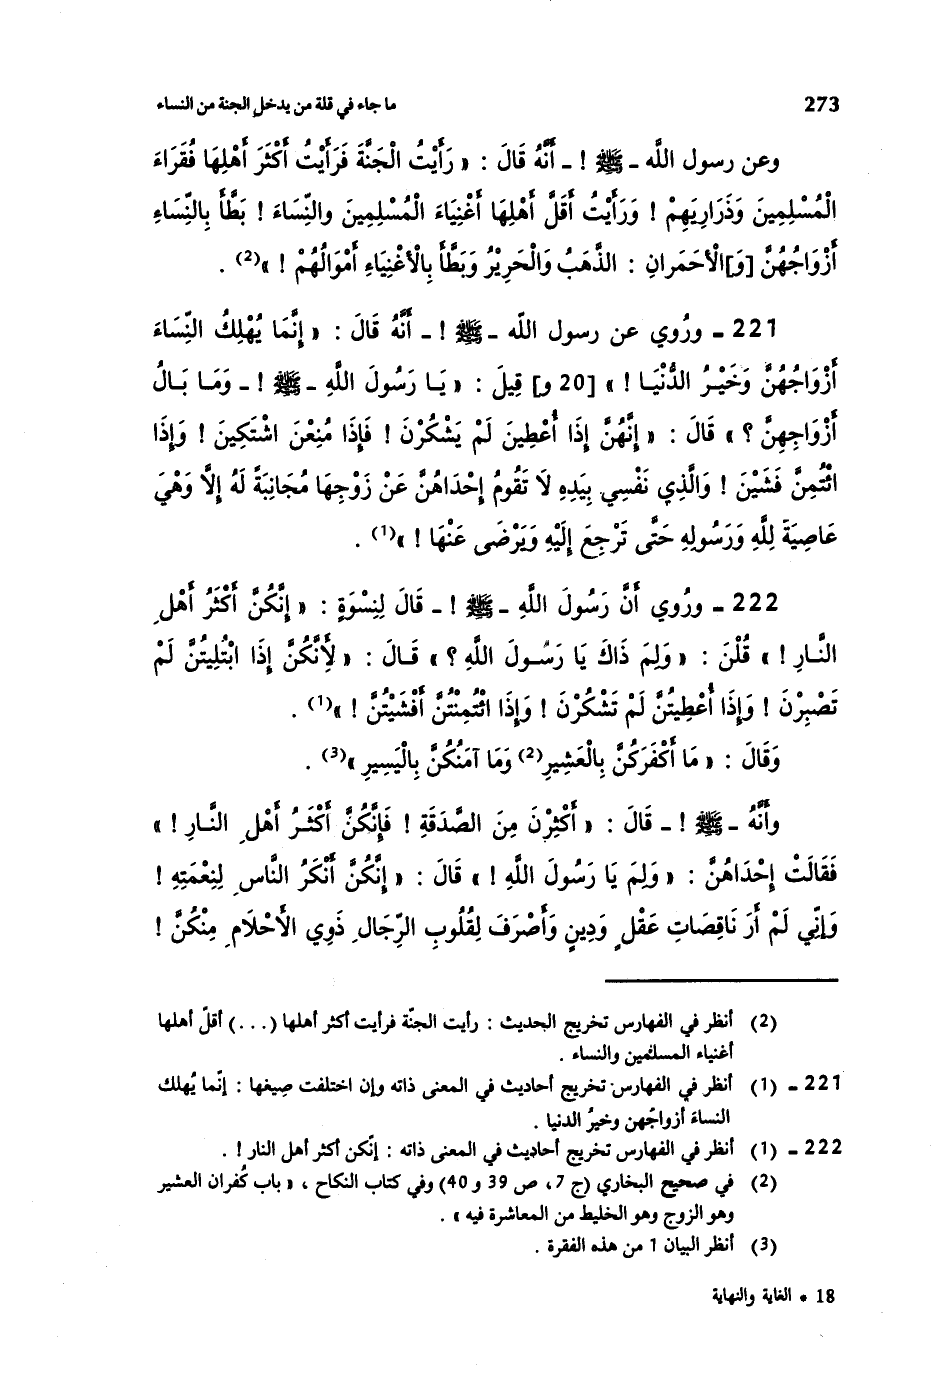 273 ما جاء في قلة من يدخل الجنة من النساء
وعن رسول اللَّه ـ ﷺ ! ـ أَنَّهُ قَالَ : « رَأَيْتُ الْجَنَّةَ فَرَأَيْتُ أَكْثَرَ أَهْلِهَا فُقَرَاءَ
الْمُسْلِمِينَ وَذَرَارِيَهِمْ ! وَرَأَيْتُ أَقَلَّ أَهْلِهَا أَغْنِيَاءَ الْمُسْلِمِينَ والنِّسَاءَ ! بَطَّأَ بِالنِّسَاءِ
أَزْوَاجُهُنَّ [وَ]الْأَحْمَرانِ : الذَّهَبُ وَالْحَرِيْرُ وَبَطَّأَ بِالْأَغْنِيَاءِ أَمْوَالُهُمْ ! »(2) .
221 ـ ورُوي عن رسول اللَّه ـ ﷺ ! ـ أَنَّهُ قَالَ : « إِنَّمَا يُهْلِكُ النِّسَاءَ
أَزْوَاجُهُنَّ وَخَيْرُ الدُّنْيَا ! » [20 و] قِيلَ : « يَا رَسُولَ اللَّهِ ـ ﷺ ! ـ وَمَا بَالُ
أَزْوَاجِهِنَّ ؟ » قَالَ : « إِنَّهُنَّ إِذَا أُعْطِينَ لَمْ يَشْكُرْنَ ! فَإِذَا مُنِعْنَ اشْتَكِينَ ! وَإِذَا
ائْتُمِنَّ فَشَيْنَ ! وَالَّذِي نَفْسِي بِيَدِهِ لَا تَقُومُ إِحْدَاهُنَّ عَنْ زَوْجِهَا مُجَانِبَةً لَهُ إِلَّا وَهْيَ
عَاصِيَةً لِلَّهِ وَرَسُولِهِ حَتَّى تَرْجِعَ إِلَيْهِ وَيَرْضَى عَنْهَا ! »(1) .
222 ـ ورُوي أَنَّ رَسُولَ اللَّهِ ـ ﷺ ! ـ قَالَ لِنِسْوَةٍ : « إِنَّكُنَّ أَكْثَرُ أَهْلِ
النَّارِ ! » قُلْنَ : « وَلِمَ ذَاكَ يَا رَسُولَ اللَّهِ ؟ » قَالَ : « لِأَنَّكُنَّ إِذَا ابْتُلِيتُنَّ لَمْ
تَصْبِرْنَ ! وَإِذَا أُعْطِيتُنَّ لَمْ تَشْكُرْنَ ! وَإِذَا ائْتُمِنْتُنَّ أَفْشَيْتُنَّ ! »(1) .
وَقَالَ : « مَا أَكْفَرَكُنَّ بِالْعَشِيرِ(2) وَمَا آمَنُكُنَّ بِالْيَسِيرِ »(3) .
وأَنَّهُ ـ ﷺ ! ـ قَالَ : « أَكْثِرْنَ مِنَ الصَّدَقَةِ ! فَإِنَّكُنَّ أَكْثَرُ أَهْلِ النَّارِ ! »
فَقَالَتْ إِحْدَاهُنَّ : « وَلِمَ يَا رَسُولَ اللَّهِ ! » قَالَ : « إِنَّكُنَّ أَنْكَرُ النَّاسِ لِنِعْمَتِهِ !
وَإِنِّي لَمْ أَرَ نَاقِصَاتِ عَقْلٍ وَدِينٍ وَأَصْرَفَ لِقُلُوبِ الرِّجَالِ ذَوِي الأَحْلَامِ مِنْكُنَّ !
(2) أنظر في الفهارس تخريج الحديث : رأيت الجنّة فرأيت أكثر أهلها (. . .) أقلّ أهلها
أغنياء المسلمين والنساء .
221 ـ (1) أنظر في الفهارس تخريج أحاديث في المعنى ذاته وإن اختلفت صِيغها : إنّما يُهلك
النساءَ أزواجُهن وخيرُ الدنيا .
222 ـ (1) أنظر في الفهارس تخريج أحاديث في المعنى ذاته : إنّكن أكثر أهل النار ! .
(2) في صحيح البخاري (ج 7، ص 39 و 40) وفي كتاب النكاح ، « باب كُفران العشير
وهو الزوج وهو الخليط من المعاشرة فيه » .
(3) أنظر البيان 1 من هذه الفقرة .
18 * الغاية والنهاية